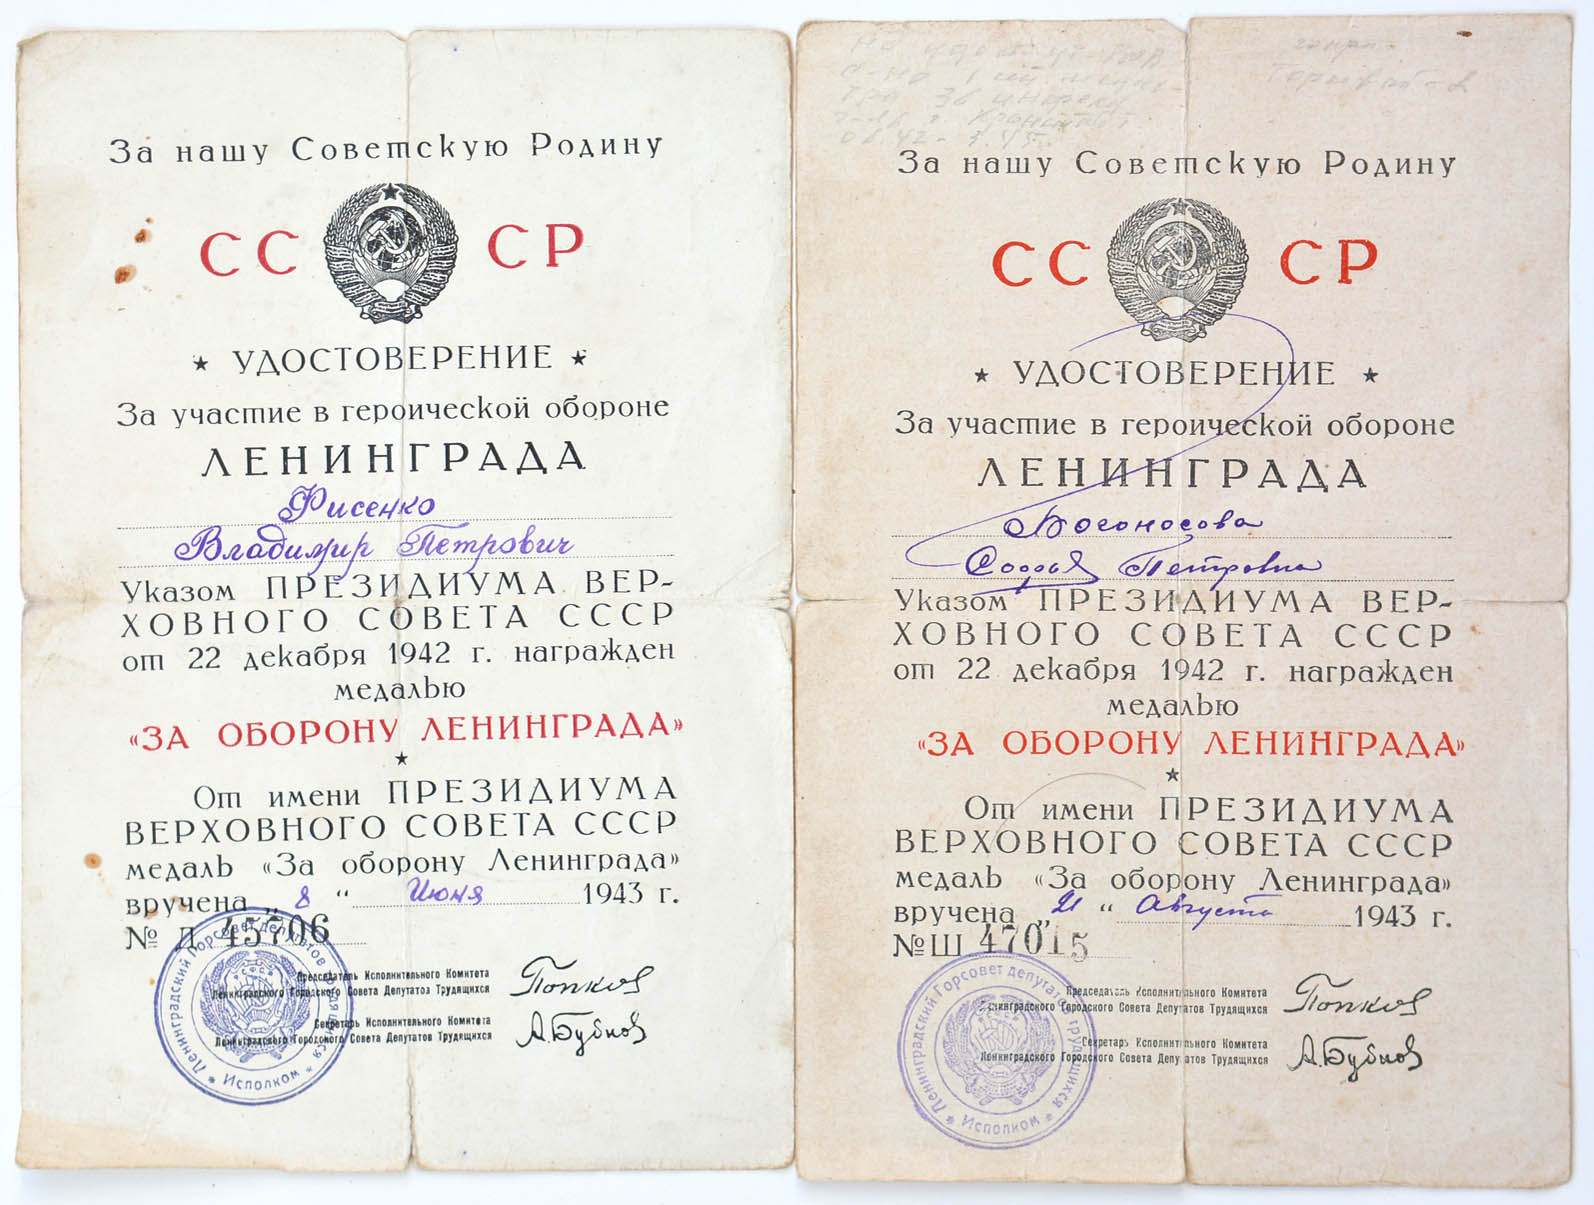 За нашу Советскую Родину
СССР
★ УДОСТОВЕРЕНИЕ ★
За участие в героической обороне
ЛЕНИНГРАДА
Фисенко
Владимир Петрович
Указом ПРЕЗИДИУМА ВЕР-
ХОВНОГО СОВЕТА СССР
от 22 декабря 1942 г. награжден
медалью
«ЗА ОБОРОНУ ЛЕНИНГРАДА»
★
От имени ПРЕЗИДИУМА
ВЕРХОВНОГО СОВЕТА СССР
медаль «За оборону Ленинграда»
вручена „8“ Июня 1943 г.
№ Л 45706
Председатель Исполнительного Комитета
Ленинградского Городского Совета Депутатов Трудящихся
Попков
Секретарь Исполнительного Комитета
Ленинградского Городского Совета Депутатов Трудящихся
А.Бубнов
Ленинградский Горсовет депутатов трудящихся
★ Исполком ★
За нашу Советскую Родину
СССР
★ УДОСТОВЕРЕНИЕ ★
За участие в героической обороне
ЛЕНИНГРАДА
Богоносова
Софья Петровна
Указом ПРЕЗИДИУМА ВЕР-
ХОВНОГО СОВЕТА СССР
от 22 декабря 1942 г. награжден
медалью
«ЗА ОБОРОНУ ЛЕНИНГРАДА»
★
От имени ПРЕЗИДИУМА
ВЕРХОВНОГО СОВЕТА СССР
медаль «За оборону Ленинграда»
вручена „21“ Августа 1943 г.
№ Ш 47015
Председатель Исполнительного Комитета
Ленинградского Городского Совета Депутатов Трудящихся
Попков
Секретарь Исполнительного Комитета
Ленинградского Городского Совета Депутатов Трудящихся
А.Бубнов
Ленинградский Горсовет депутатов трудящихся
★ Исполком ★